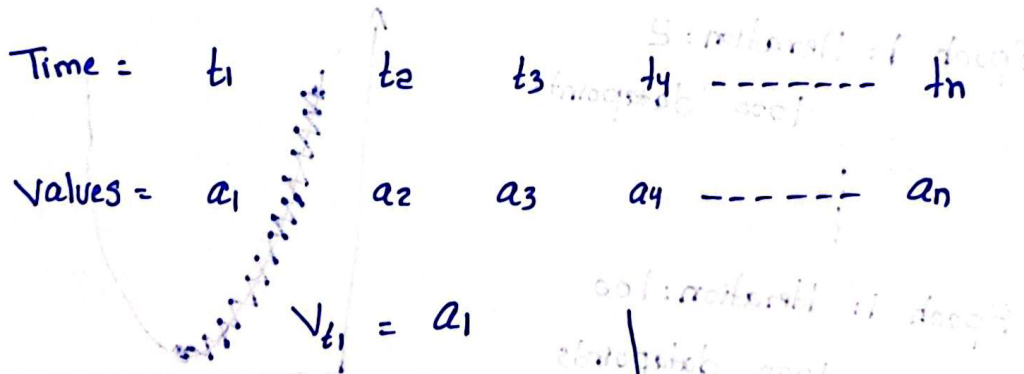 Time = t1 t2 t3 t4 ------- tn
Values = a1 a2 a3 a4 ------ an
Vt1 = a1